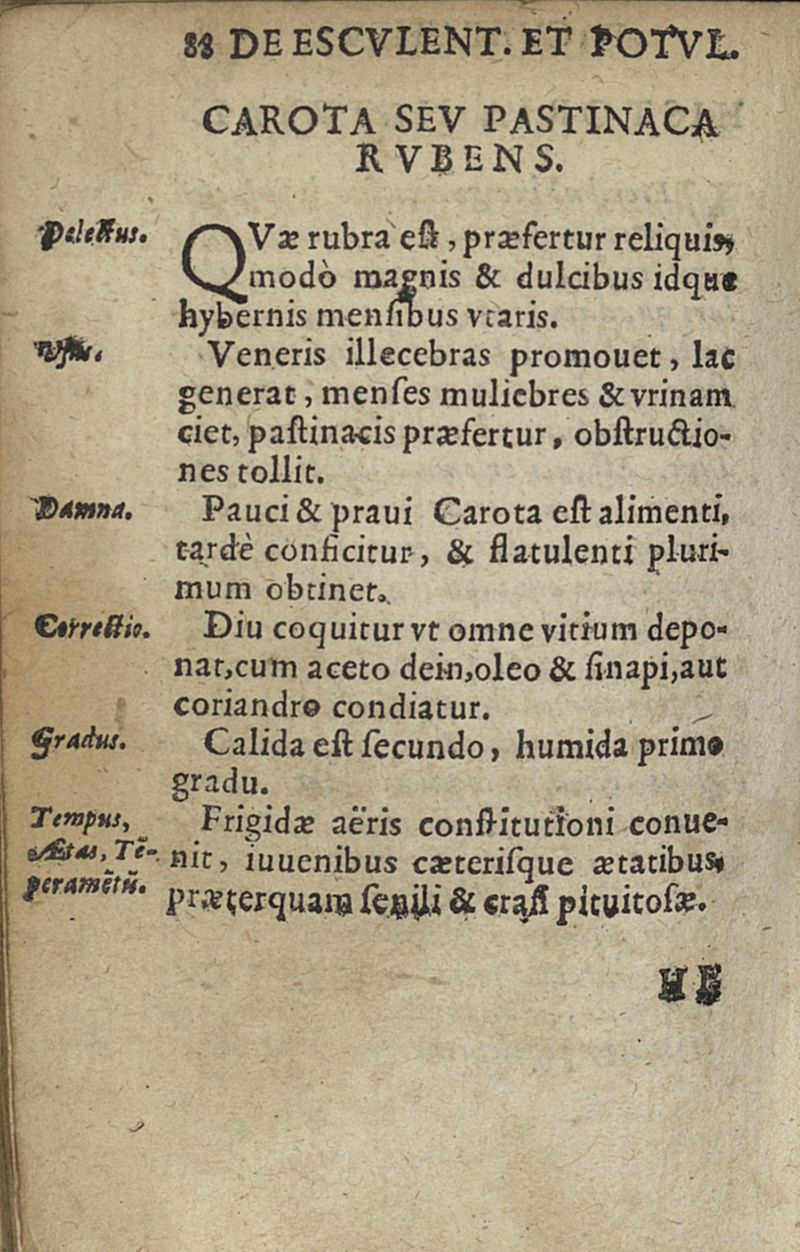 88 DE ESCVLENT. ET POTVL.
CAROTA SEV PASTINACA
RVBENS.
Delectus.
QVæ rubra est, præfertur reliquis,
modò magnis & dulcibus idque
hybernis mensibus vtaris.
Vsus.
Veneris illecebras promouet, lac
generat, menses muliebres & vrinam
ciet, pastinacis præfertur, obstructio-
nes tollit.
Damna.
Pauci & praui Carota est alimenti,
tardè conficitur, & flatulenti pluri-
mum obtinet.
Correctio.
Diu coquitur vt omne vitium depo-
nat, cum aceto dein, oleo & sinapi, aut
coriandro condiatur.
Gradus.
Calida est secundo, humida primo
gradu.
Tempus,
Ætas, Tē-
peramētū.
Frigidæ aëris constitutioni conue-
nit, iuuenibus cæterisque ætatibus,
præterquam senili & crassæ pituitosæ.